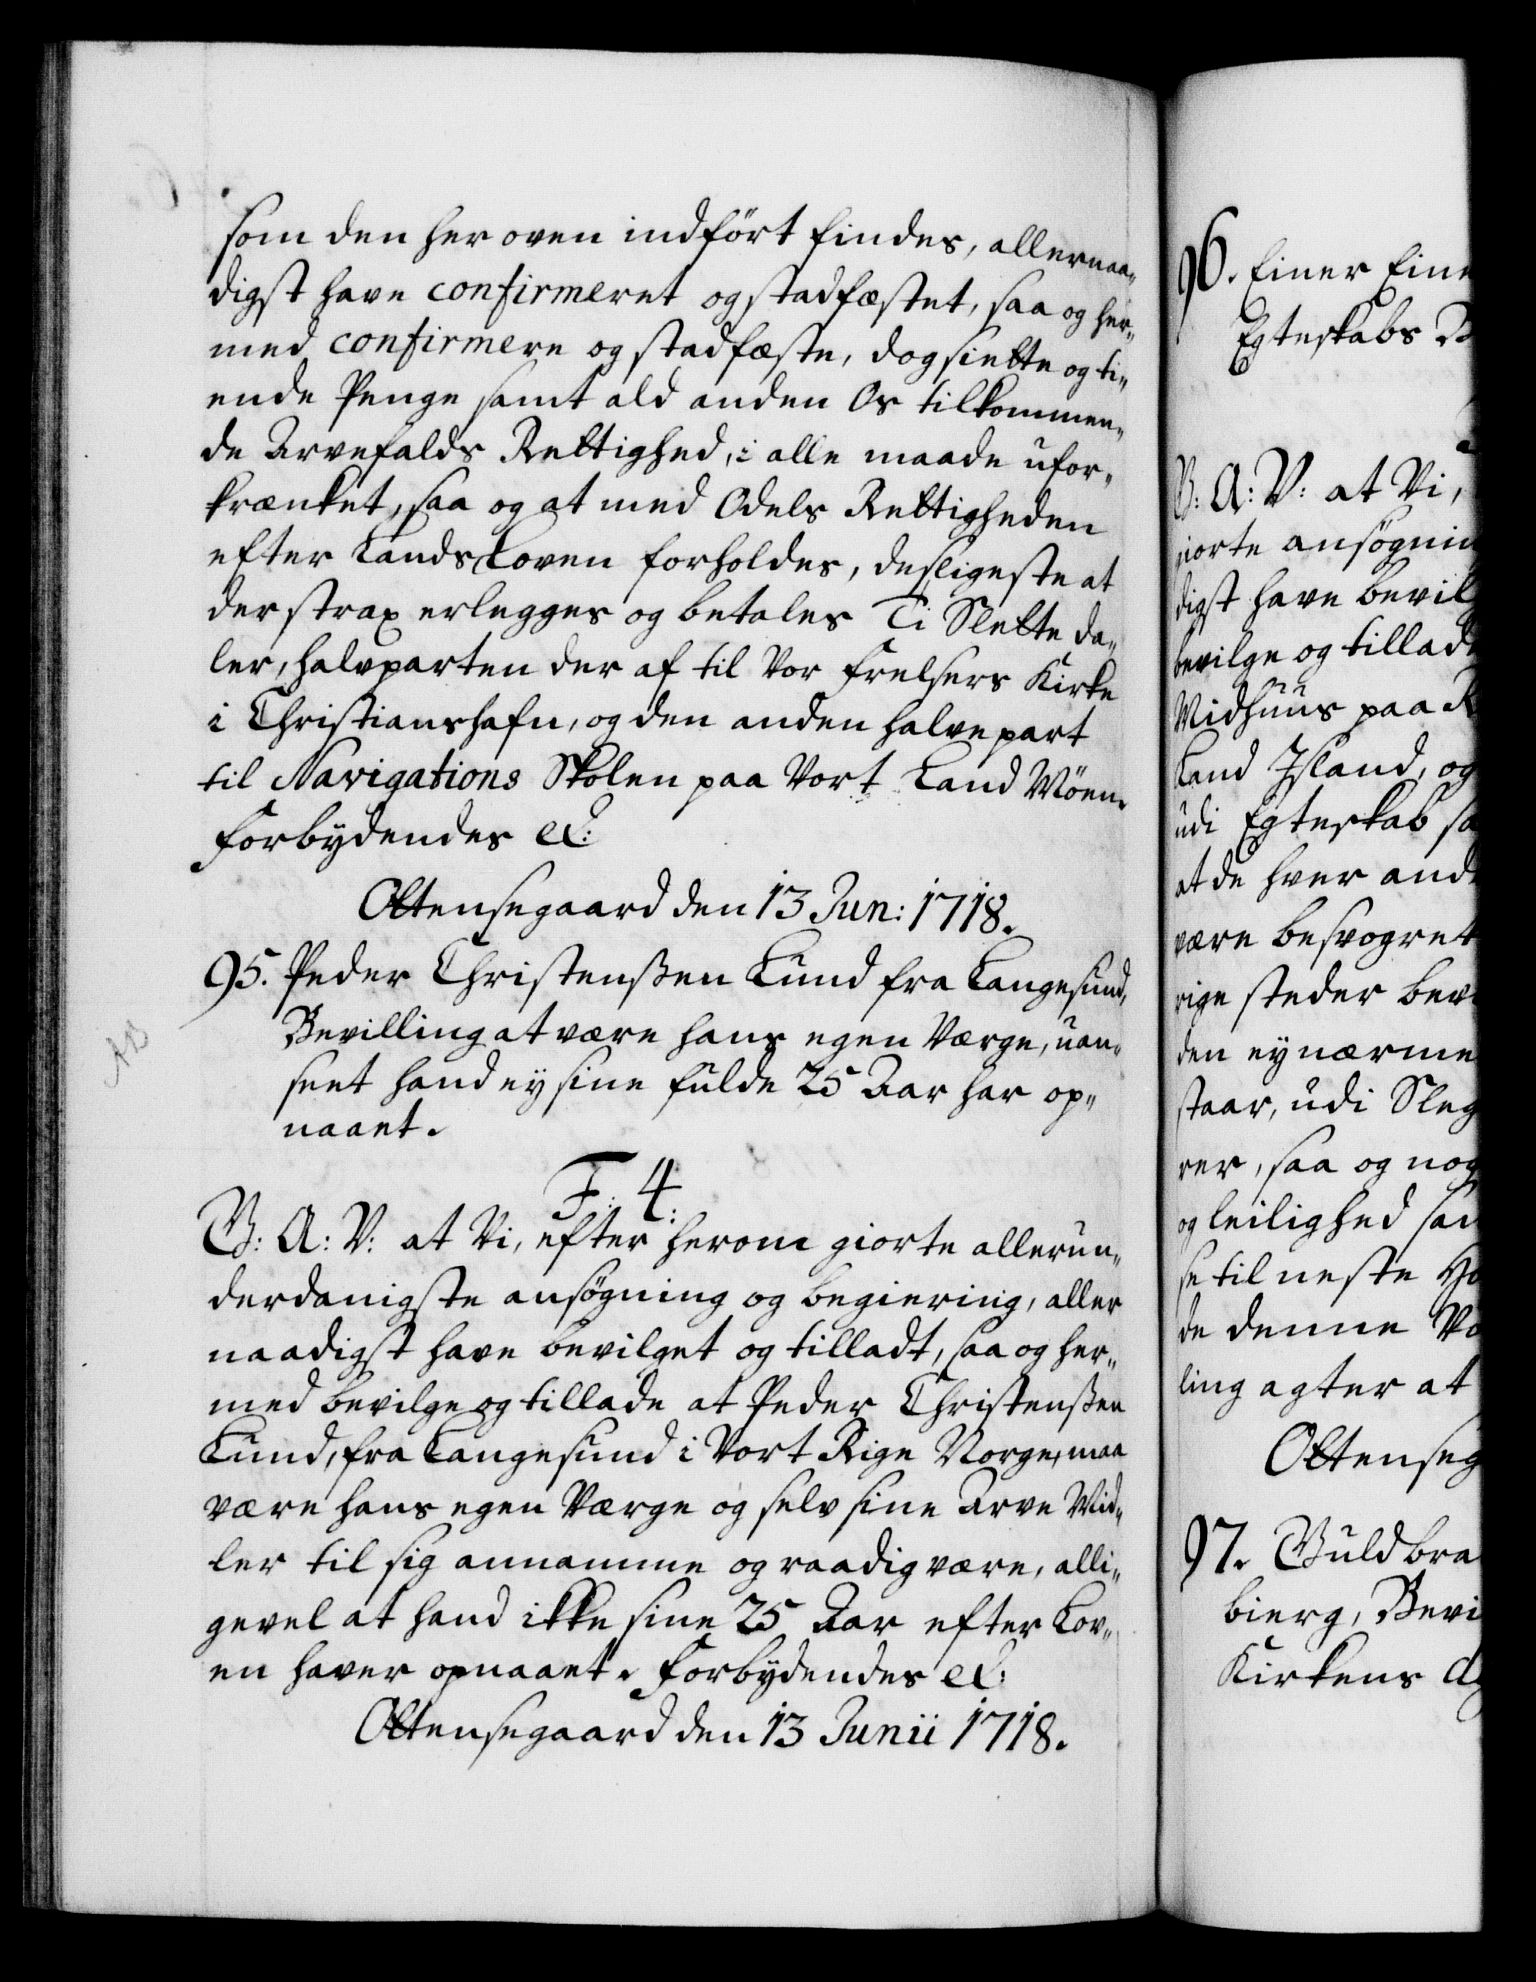 som den her oven indført findes, allernaa„
digst have confirmeret og stadfæstet, saa og her„
med confirmere og stadfæste, dog siette og ti„
ende Penge samt ald anden Os tilkommen„
de Arvefalds Rettighed, i alle maade ufor„
krænket, saa og at med Odels Rettigheden
efter Lands Loven forholdes, desligeste at
der strax erlegges og betales Ti Slette da„
ler, halvparten der af til Vor Frelsers Kirke
i Christianshafn, og den anden halve part
til Navigations Skolen paa Vort Land Möen.
Forbydendes etc:
Ottensegaard den 13 Jun: 1718.
95. Peder Christenßen Lund fra Langesund,
Bevilling at være hans egen Værge, uan„
seet hand ey sine fulde 25 Aar har op„
naaet.
F: 4:
G: A: V: at Vi, efter herom giorte allerun„
derdanigste ansøgning og begiering, aller
naadigst have bevilget og tilladt, saa og her„
med bevilge og tillade at Peder Christenßen
Lund, fra Langesund i Vort Rige Norge, maa
være hans egen Værge og selv sine Arve Mid„
ler til sig annamme og raadig være, alli„
gevel at hand ikke sine 25 Aar efter Lov„
en haver opnaaet. Forbydendes etc:
Ottensegaard den 13 Junii 1718.
96. Einer Eine
Egteskabs B
G: A: V: at Vi,
giorte ansøgnin
digst have bevil
bevilge og tillad
Midhuus paa R
Land Island, og
udi Egteskab sa
at de hver and
være besvogret
rige steder bev
den ey nærme
staar, udi Sleg
rer, saa og nog
og leilighed sa
se til neste Ho
de denne Vo
ling agter at
Ottenseg
97. Guldbra
bierg, Bevi
Kirkens